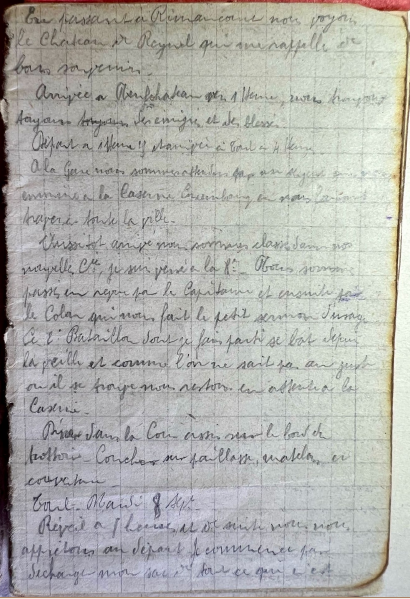 En passant à Rimaucourt nous voyons
le Chateau de Reynel qui me rappelle de
bons souvenirs.
Arrivée a Neufchateau vers 1 heure, nous
toujours des et des blessés.
Départ a 1 heure et arrivée à Toul a 4 heures
A la Gare nous sommes attendus par un sergent
a la Caserne Luxembourg en nous faisant
traverser toute la ville.
Aussitot arrivé nous sommes classés dans nos
nouvelle Cie, je suis versé a la 8e. Nous sommes
passés en revue par le Capitaine et ensuite par
le Colon qui nous fait le petit sermon d'usage
Ce 2e Bataillon dont je fais parti se bat depuis
la veille et comme l'on ne sait pas au juste
ou il se trouve nous restons en attente a la
Caserne.
dans la Cour assis sur le bord du
trottoir. Coucher sur paillasse, matelas, et
couverture.
Toul. Mardi 8 Sept.
Réveil a 5 heures, et de suite nous nous
appretons au départ. Je commence par
décharger mon sac de tout ce qui est